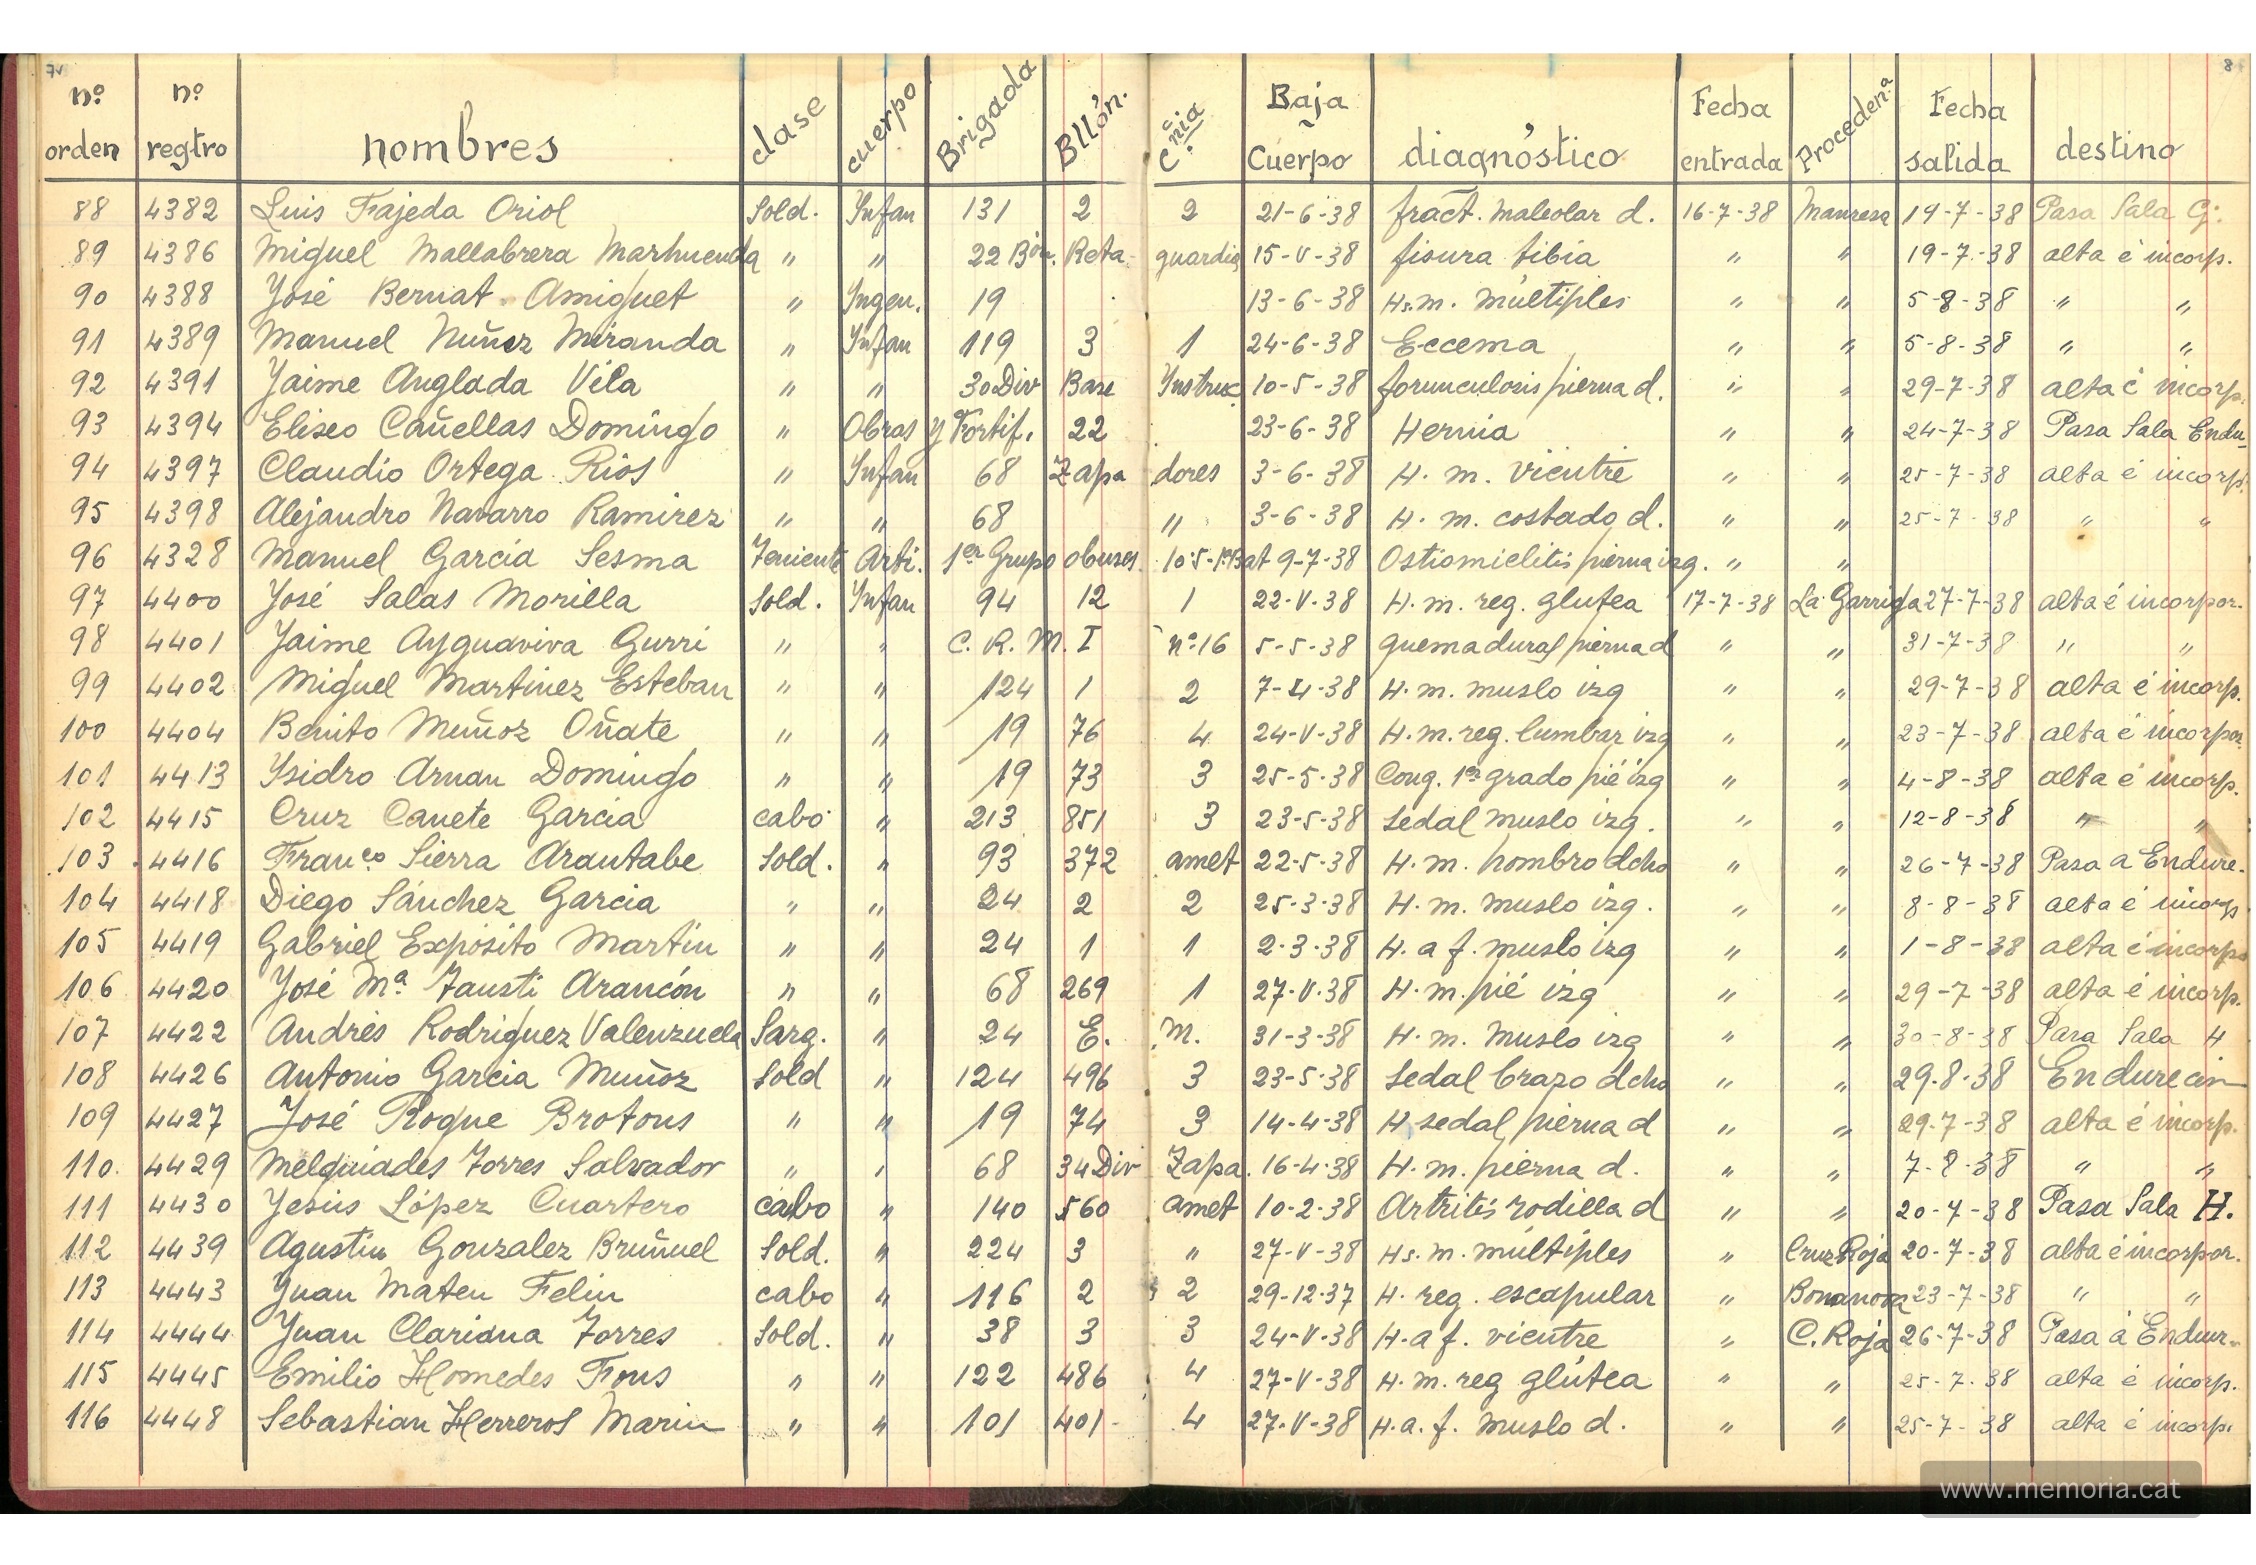 7v 8
nº orden nº regtro nombres clase cuerpo Brigada Bllón. Cñia Baja Cuerpo diagnóstico Fecha entrada Procedenª Fecha salida destino
88 4382 Luis Fajeda Oriol Sold. Infan 131 2 2 21-6-38 fract. maleolar d. 16-7-38 Manresa 19-7-38 Pasa Sala G.
89 4386 Miguel Mallabrera Marhuenda " " 22 Bón. Reta-guardia 15-V-38 fisura tibia " " 19-7-38 alta é incorp.
90 4388 José Bernat Amiguet " Ingen. 19 13-6-38 Hs.m. múltiples " " 5-8-38 " "
91 4389 Manuel Nuñez Miranda " Infan 119 3 1 24-6-38 Eccema " " 5-8-38 " "
92 4391 Jaime Anglada Vila " " 30 Div Base Instruc. 10-5-38 forunculosis pierna d. " " 29-7-38 alta é incorp.
93 4394 Eliseo Cañellas Domingo " Obras y Fortif. 22 23-6-38 Hernia " " 24-7-38 Pasa Sala Endu-
94 4397 Claudio Ortega Rios " Infan 68 Zapadores 3-6-38 H. m. vientre " " 25-7-38 alta é incorp.
95 4398 Alejandro Navarro Ramirez " " 68 " 3-6-38 H. m. costado d. " " 25-7-38 " "
96 4328 Manuel García Sesma Teniente Arti. 1er Grupo obuses 10'5-1ªBat 9-7-38 Ostiomielitis pierna izq. " "
97 4400 José Salas Morilla Sold. Infan 94 12 1 22-V-38 H. m. reg. glutea 17-7-38 La Garriga 27-7-38 alta é incorpor.
98 4401 Jaime Ayguaviva Gurri " " C. R. M. I nº16 5-5-38 quemaduras pierna d " " 31-7-38 " "
99 4402 Miguel Martinez Esteban " " 124 1 2 7-4-38 H. m. muslo izq " " 29-7-38 alta é incorp.
100 4404 Benito Muñoz Oñate " " 19 76 4 24-V-38 H. m. reg. lumbar izq " " 23-7-38 alta é incorpor.
101 4413 Isidro Arnan Domingo " " 19 73 3 25-5-38 Cong. 1er grado pié izq " " 4-8-38 alta é incorp.
102 4415 Cruz Canete Garcia cabo " 213 851 3 23-5-38 Sedal muslo izq. " " 12-8-38 " "
103 4416 Franco Sierra Arantabe Sold. " 93 372 amet 22-5-38 H. m. hombro dcho " " 26-7-38 Pasa a Endure.
104 4418 Diego Sánchez Garcia " " 24 2 2 25-3-38 H. m. muslo izq. " " 8-8-38 alta é incorp
105 4419 Gabriel Expósito Martin " " 24 1 1 2-3-38 H. a f. muslo izq " " 1-8-38 alta é incorpo
106 4420 José Mª Fausti Arancón " " 68 269 1 27-V-38 H. m. pié izq " " 29-7-38 alta é incorp.
107 4422 Andrés Rodriguez Valenzuela Sarg. " 24 E. M. 31-3-38 H. m. muslo izq " " 30-8-38 Pasa Sala H
108 4426 Antonio Garcia Muñoz Sold " 124 496 3 23-5-38 Sedal brazo dcho " " 29-8-38 Endurecin
109 4427 José Roque Brotons " " 19 74 3 14-4-38 H sedal pierna d " " 29-7-38 alta é incorp.
110. 4429 Melquiades Torres Salvador " " 68 34 Div Zapa. 16-4-38 H. m. pierna d. " " 7-8-38 " "
111 4430 Jesús López Cuartero cabo " 140 560 amet 10-2-38 Artritis rodilla d " " 20-7-38 Pasa Sala H.
112 4439 Agustin Gonzalez Bruñuel Sold. " 224 3 " 27-V-38 Hs. m. múltiples " Cruz Roja 20-7-38 alta é incorpor.
113 4443 Juan Mateu Feliu cabo " 116 2 2 29-12-37 H. reg. escapular " Bonanova 23-7-38 " "
114 4444 Juan Clariana Torres Sold. " 38 3 3 24-V-38 H. a f. vientre " C. Roja 26-7-38 Pasa á Endur..
115 4445 Emilio Homedes Fons " " 122 486 4 27-V-38 H. m. reg glútea " " 25-7-38 alta é incorp.
116 4448 Sebastian Herreros Marin " " 101 401- 4 27-V-38 H. a. f. muslo d. " " 25-7-38 alta é incorp.
www.memoria.cat